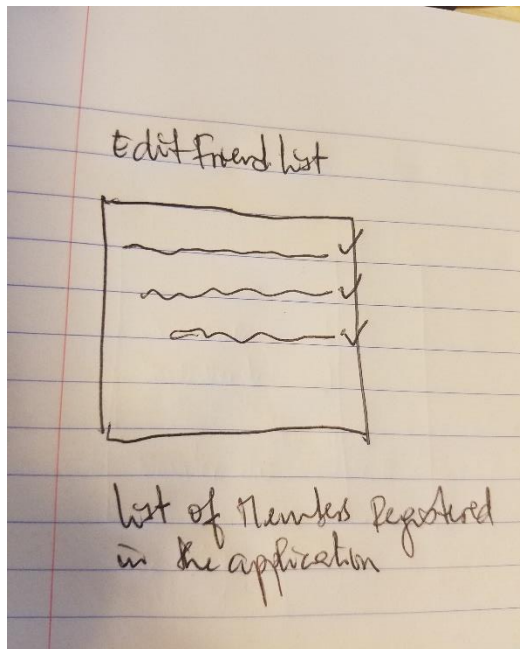 Edit Friend List
List of Members Registered
in the application